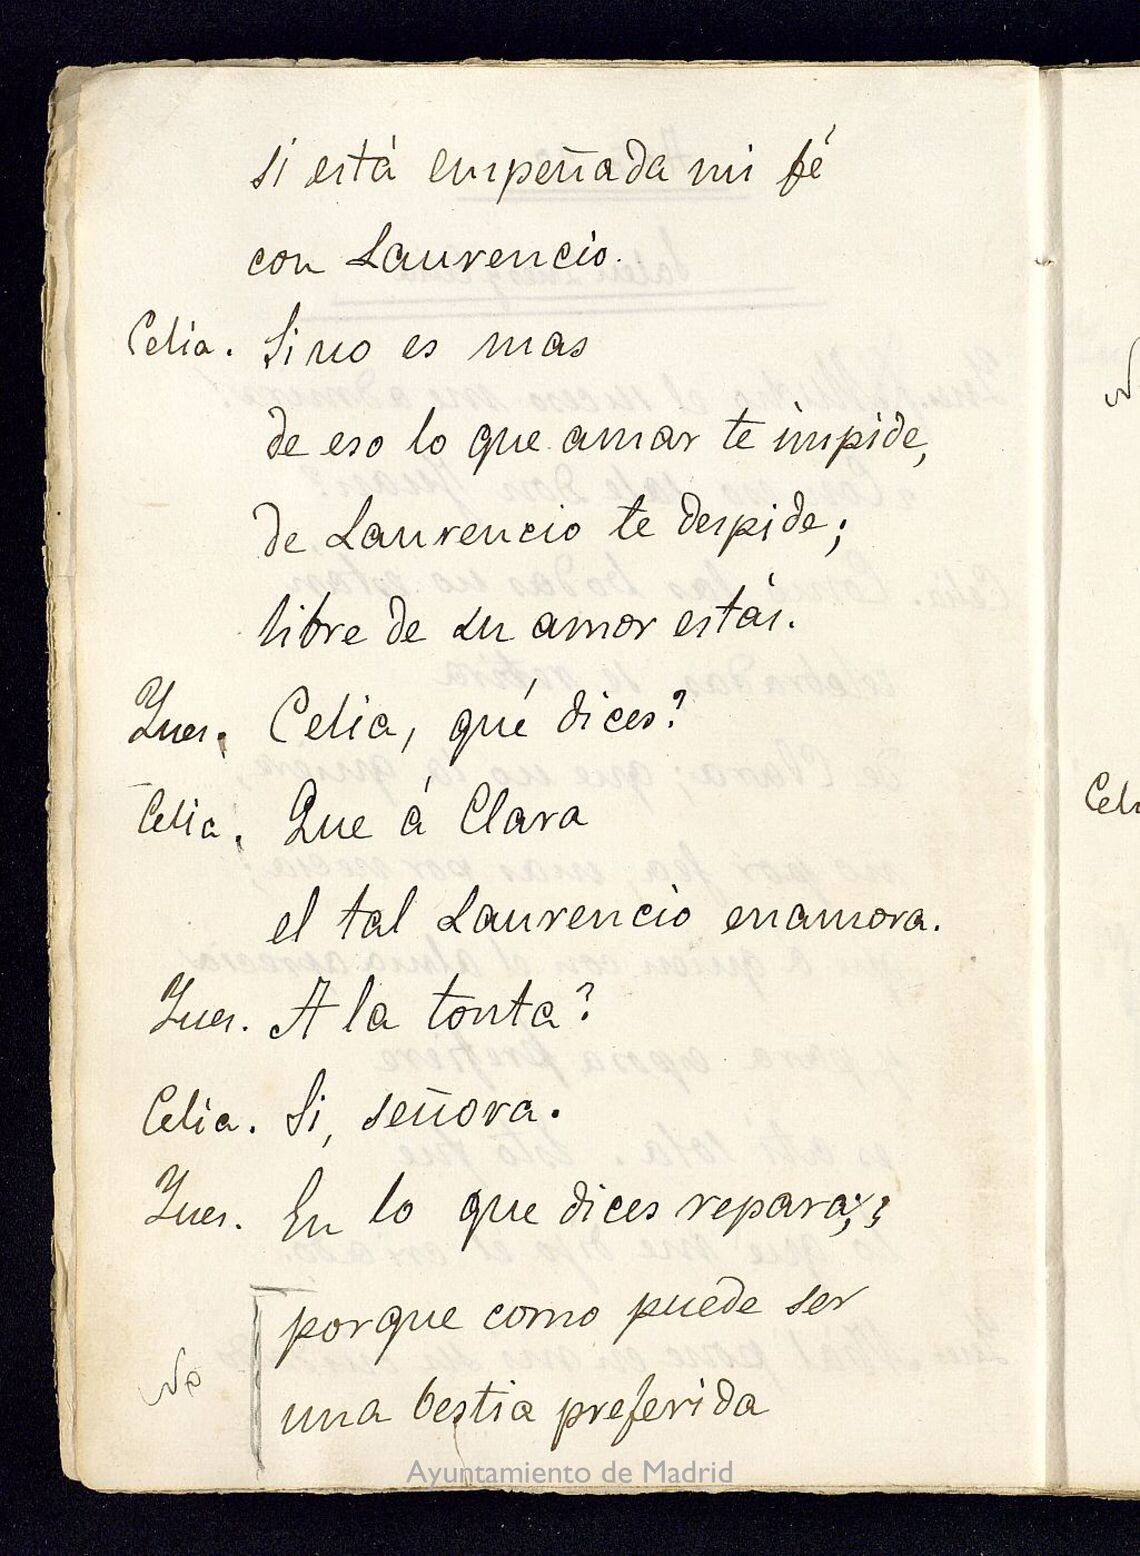 si está empeñada mi fé
con Laurencio.
Celia. Si no es mas
de eso lo que amar te impide,
de Laurencio te despide;
libre de su amor estás.
Ynes. Celia, qué dices?
Celia. Que á Clara
el tal Laurencio enamora.
Ynes. A la tonta?
Celia. Si, señora.
Ynes. En lo que dices repara;
porque como puede ser
No
una bestia preferida
Celi
Ayuntamiento de Madrid